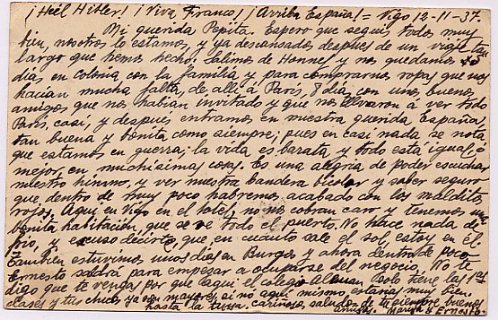 ¡Heil Hitler! ¡Viva Franco! ¡Arriba España! = Vigo 12-11-37-
Mi querida Pepita. Espero que seguís todos muy
bién, nosotros lo estamos, y ya descansados después de un viaje tan
largo que hemos hecho. Salimos de Honnef y nos quedamos
días, en Colonia con la familia y para comprarnos ropas que nos
hacían mucha falta, de allí a París, 8 días con unos buenos
amigos que nos habían invitado y que nos llevaron á ver todo
París, casí, y después entramos en nuestra querida España,
tan buena y bonita como siempre; pues en casi nada se nota
que estamos en guerra, la vida es barata, y todo está igual, ó
mejor, en muchísimas cosas. Es una alegría de poder escuchar
nuestro himno, y ver nuestra bandera bicolor y saber seguro
que, dentro de muy poco habremos acabado con los malditos
rojos. Aquí en Vigo en el hotel no nos cobran caro y tenemos una
bonita habitación, que se ve todo el puerto. No hace nada de
frío, y excuso decirte, que, en cuánto sale el sol, estoy en él.
También estuvimos, unos días en Burgos y ahora dentro de poco
Ernesto saldrá para empezar a ocuparse del negocio. No te
digo que te vengas por que aquí el colegio Aleman solo tiene las 1as
clases y tus chicos ya son mayores, si no aquí mismo estarías muy bien
hasta la tuya. cariñosos saludos de tu siempre buenos
amigos. Maruja y Ernesto.